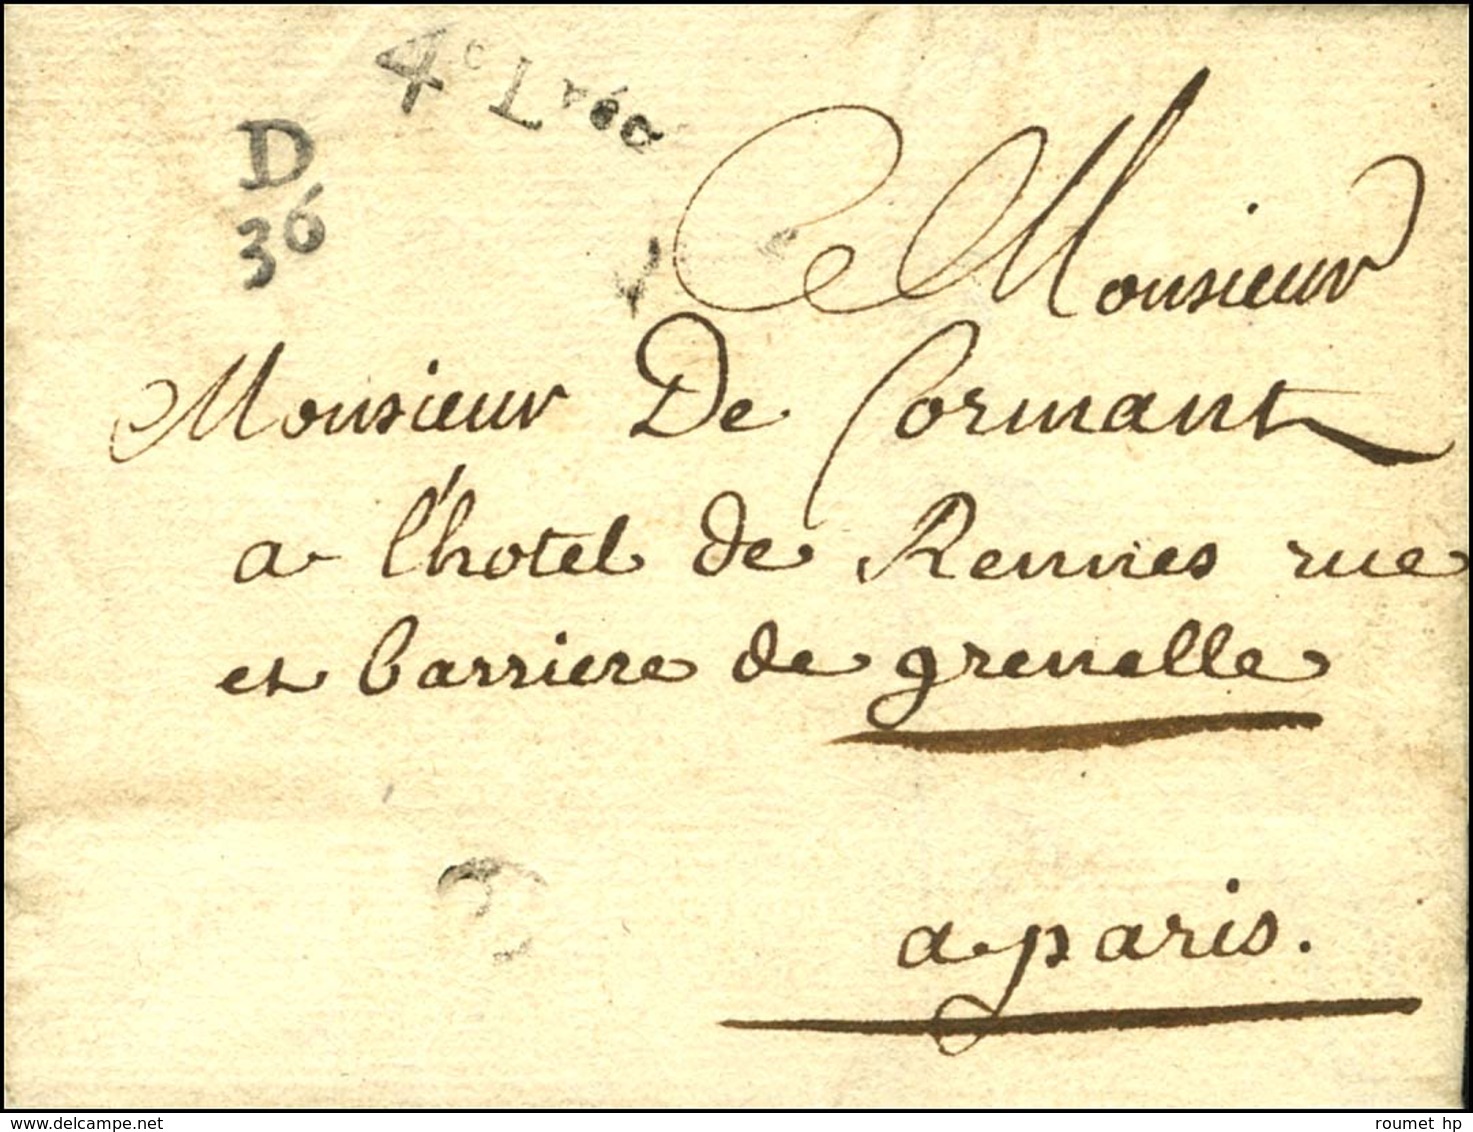 4e Lvée
D
36
Monsieur
Monsieur De Cormant
a l'hotel de Rennes rue
et barriere de grenelle
a paris.
delcampe.net
roumet hp